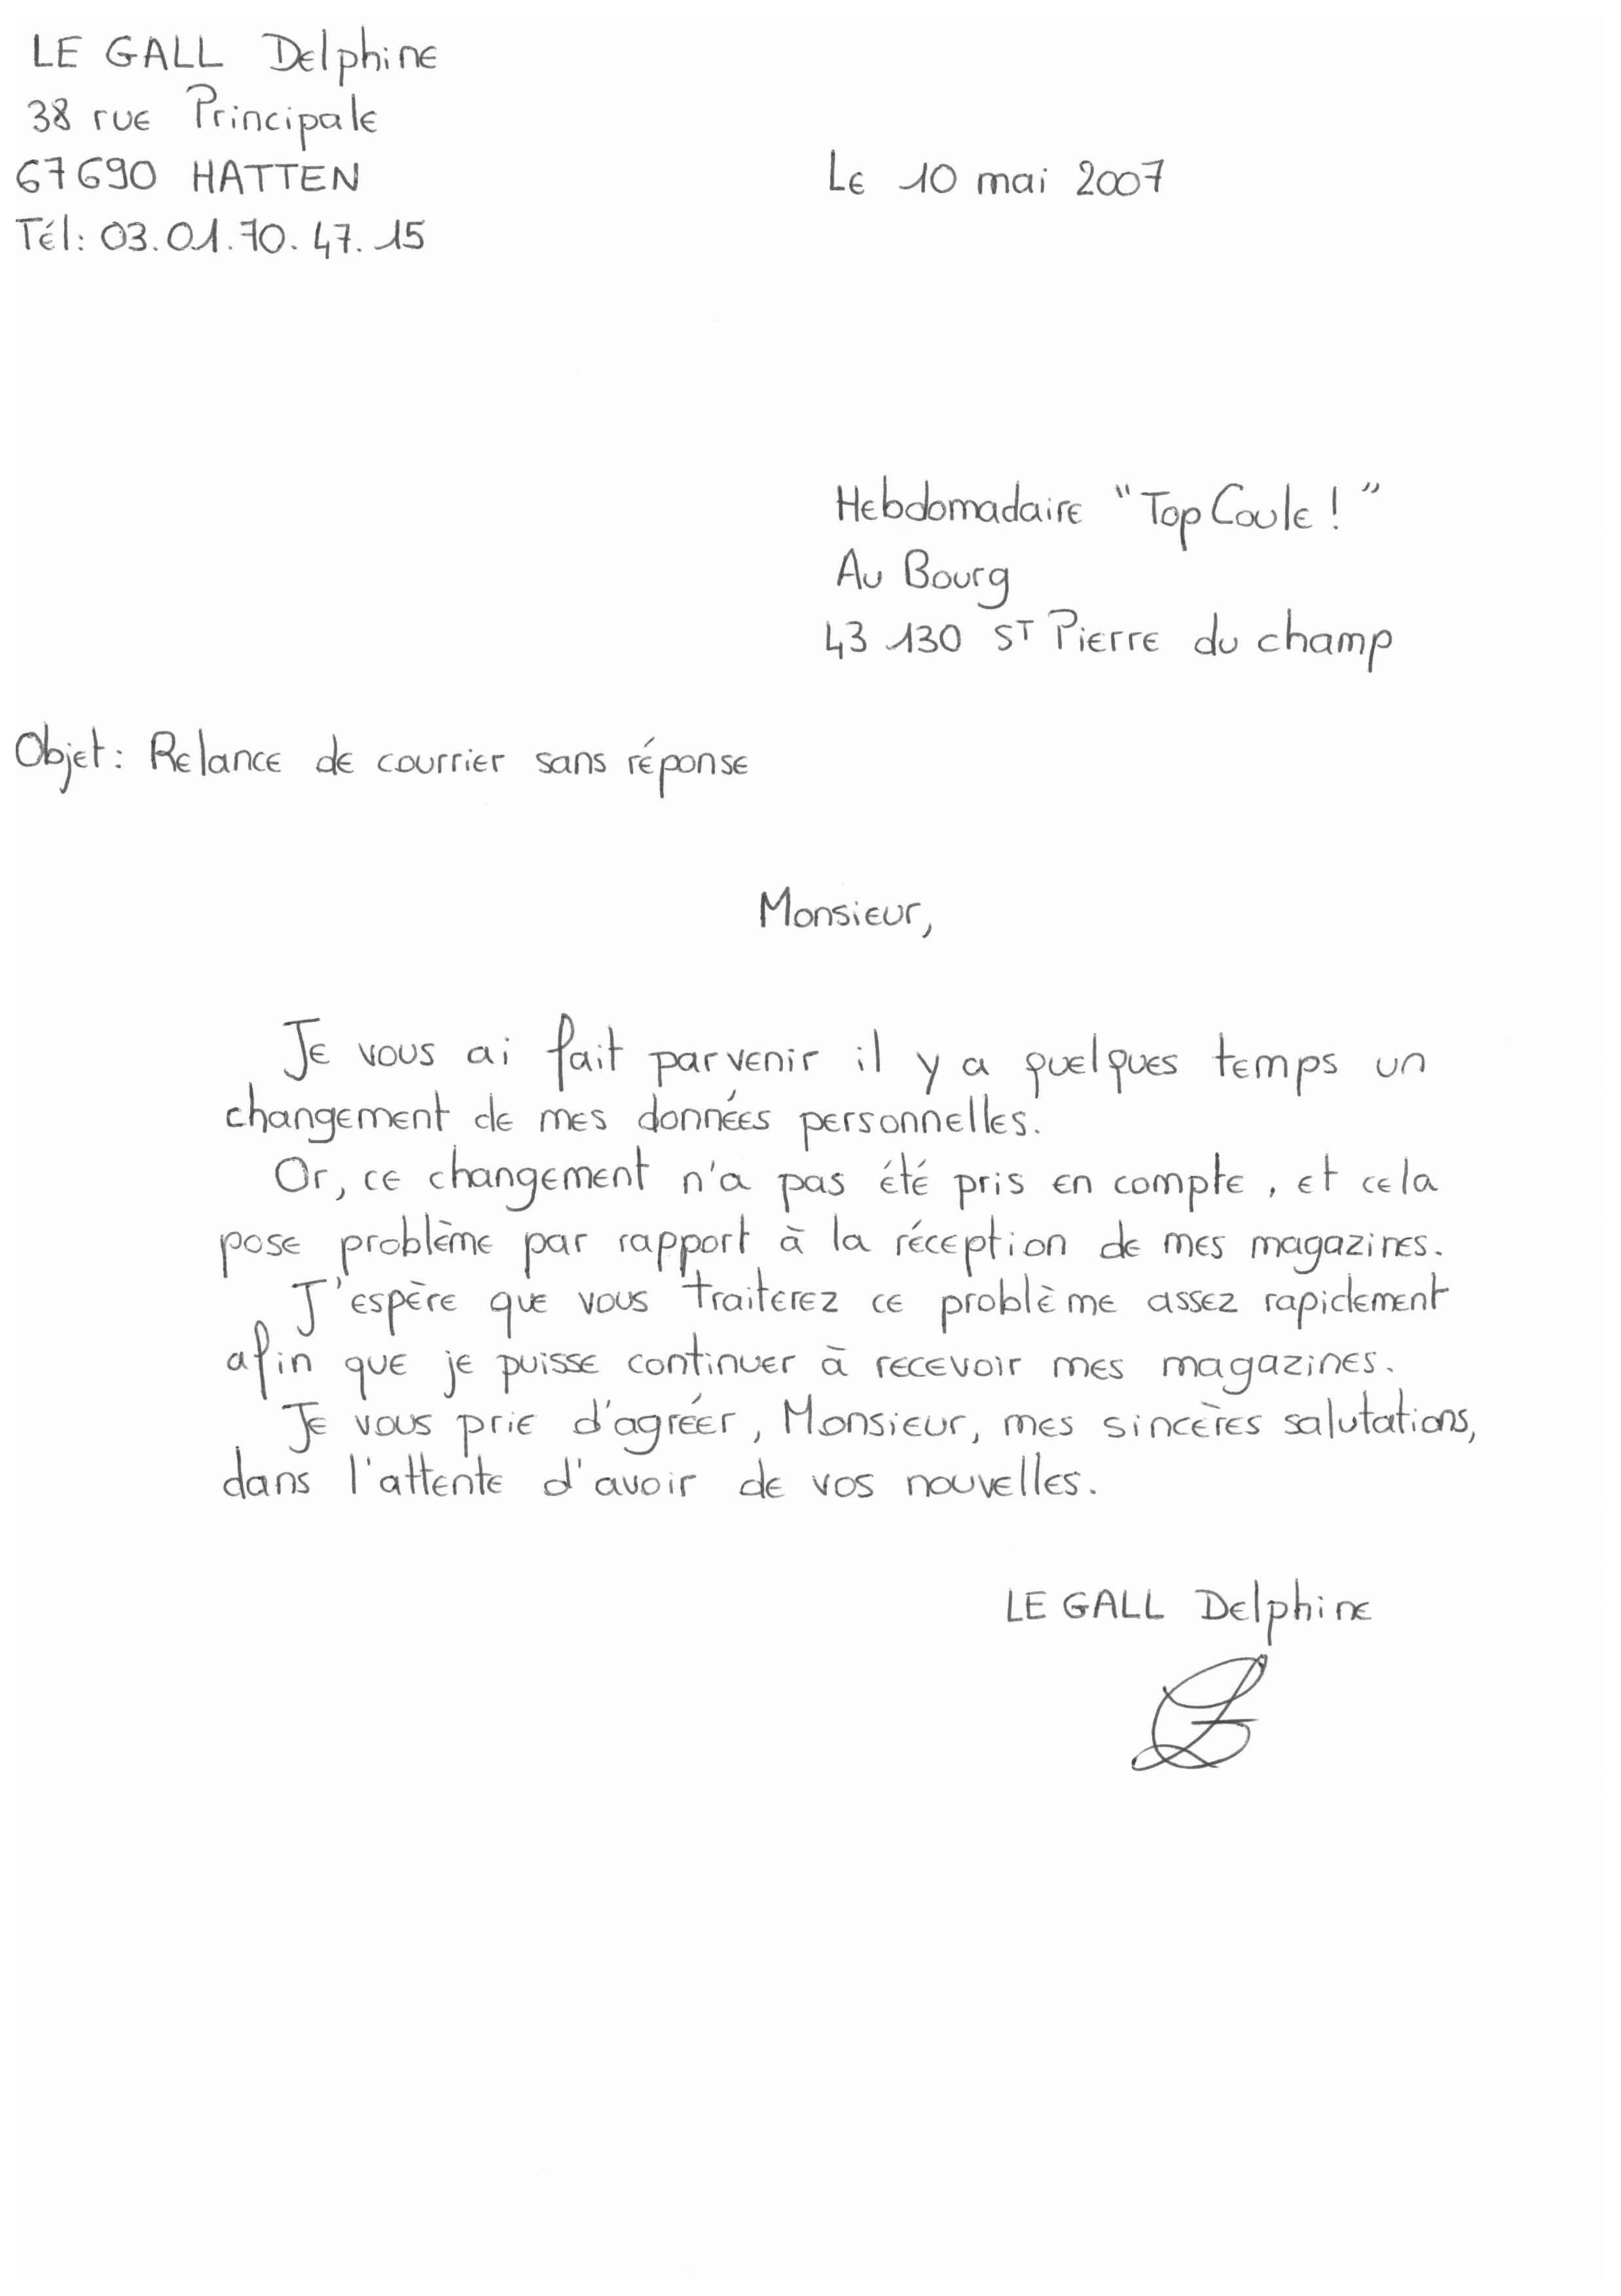 LE GALL Delphine
38 rue Principale
67690 HATTEN
Le 10 mai 2007
Tél: 03.01.70.47.15
Hebdomadaire "Top Coule ! "
Au Bourg
43 130 ST Pierre du champ
Objet: Relance de courrier sans réponse
Monsieur,
Je vous ai fait parvenir il y a quelques temps un
changement de mes données personnelles.
Or, ce changement n'a pas été pris en compte, et cela
pose problème par rapport à la réception de mes magazines.
J'espère que vous traiterez ce problème assez rapidement
afin que je puisse continuer à recevoir mes magazines.
Je vous prie d'agréer, Monsieur, mes sincères salutations,
dans l'attente d'avoir de vos nouvelles.
LE GALL Delphine